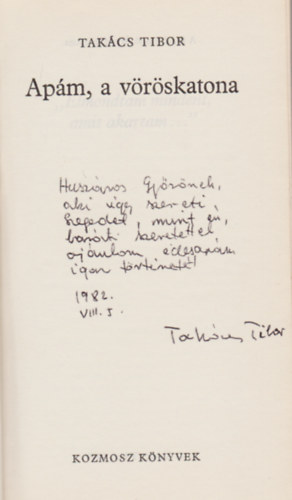 TAKÁCS TIBOR
Apám, a vöröskatona
Huszáros Győzőnek,
aki úgy szereti
Szegedet, mint én,
baráti szeretettel
ajánlom édesapám
igaz történetét
1982.
VIII. 5.
Takács Tibor
KOZMOSZ KÖNYVEK